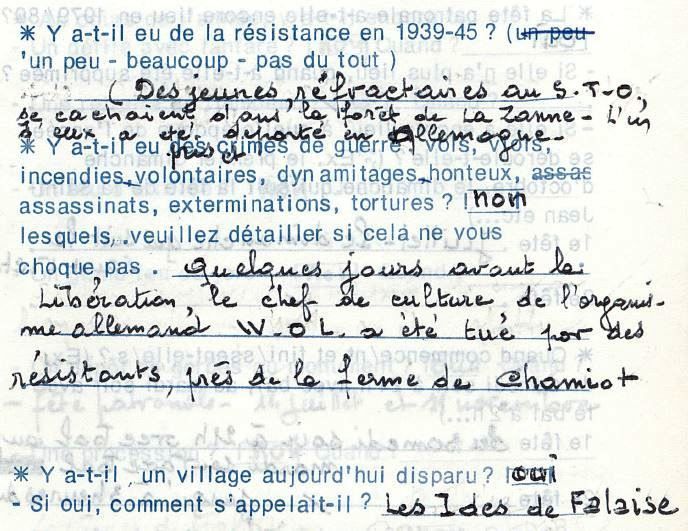 * Y a-t-il eu de la résistance en 1939-45 ? (un peu
'un peu - beaucoup - pas du tout )
( Des jeunes, réfractaires au S.T.O.
se cachaient dans la forêt de La Zanne - L'un
d'eux a été déporté en Allemagne -
pris et
* Y a-t-il eu des crimes de guerre, vols, viols,
incendies volontaires, dynamitages honteux, assas
assassinats, exterminations, tortures ? non
lesquels, veuillez détailler si cela ne vous
choque pas . Quelques jours avant la
Libération, le chef de culture de l'organis-
me allemand W.O.L. a été tué par des
résistants, près de la ferme de Chamiot
* Y a-t-il un village aujourd'hui disparu ? oui
- Si oui, comment s'appelait-il ? Les Ides de Falaise